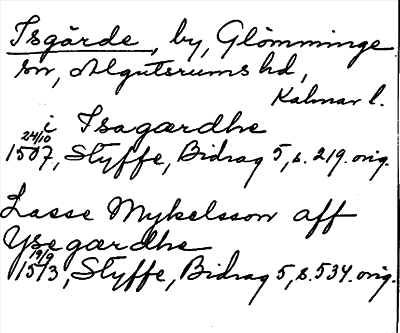 Isgärde, by, Glömminge
sn, Algutsrums hd,
Kalmar l.
i Isagærdhe
24/10
1507, Styffe, Bidrag 5, s. 219. orig.
Lasse Mykelsson aff
Ysegærdhe
19/9
1513, Styffe, Bidrag 5, s. 534. orig.